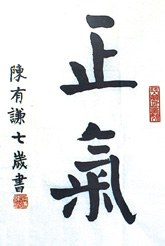 正氣
陳有謙七歲書